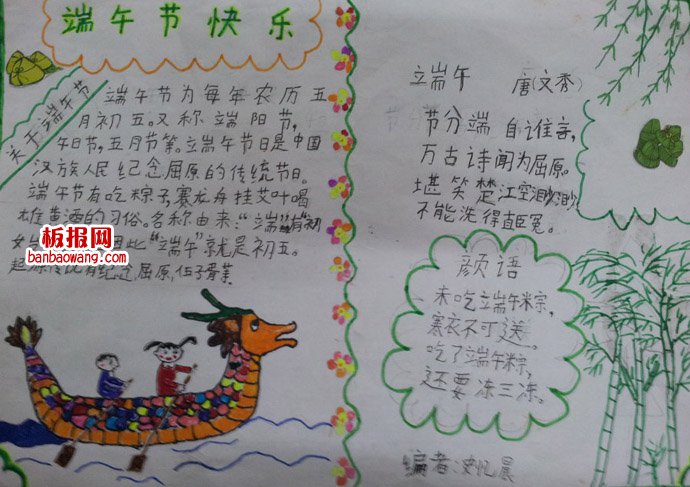 端午节快乐
关于端午节
端午节为每年农历五
月初五。又称端阳节,
午日节,五月节等。端午节日是中国
汉族人民纪念屈原的传统节日。
端午节有吃粽子赛龙舟挂艾叶喝
雄黄酒的习俗。名称由来:“端”有“初
始 “端午”就是初五。
起源传说有纪念屈原,伍子胥
板报网
banbaowang.com
端午 唐(文秀)
节分端午自谁言,
万古诗闻为屈原。
堪笑楚江空渺渺
不能洗得直臣冤。
颜语
未吃端午粽,
寒衣不可送。
吃了端午粽,
还要冻三冻。
编者:史忆晨